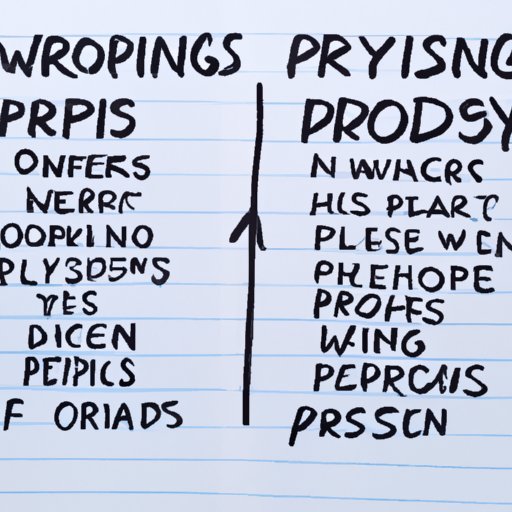 WROPINGS
PRPIS
ONFERS
NERRC
OOPKI NO
PLY3DSNS
YES
DICEN
PEIPICS
F ORIADS
PRYISNG
PRODSY
N WWHCRS
HLS PLART
PLESE WEN
PHEHOPE
PROHFS
WING
PERPCAIS
PRSSCN